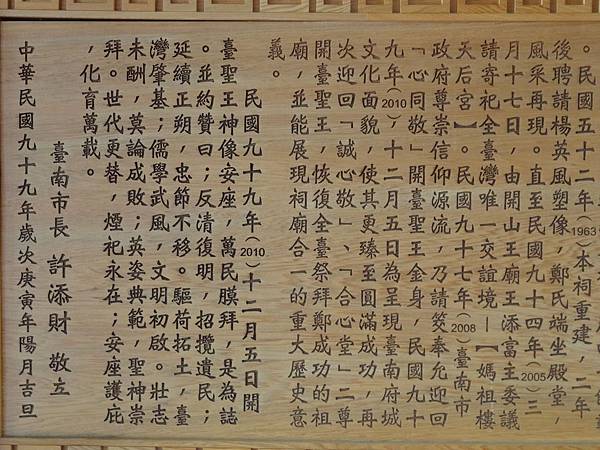 。民國五十二年(1963)本祠重建，二年
後聘請楊英風塑像，鄭氏端坐殿堂，
風采再現。直至民國九十四年(2005)三
月十七日，由開山王廟王添富主委議
請寄祀全臺灣唯一交誼境—【媽祖樓
天后宮】。民國九十七年(2008)臺南市
政府尊崇信仰源流，乃請筊奉允迎回
「心同敬」開臺聖王金身，民國九十
九年(2010)，十二月五日為呈現臺南府城
文化面貌，使其更臻至圓滿成功，再
次迎回「誠心敬」、「合心堂」二尊
開臺聖王，恢復全臺祭拜鄭成功的祖
廟，並能展現祠廟合一的重大歷史意
義。
民國九十九年(2010)十二月五日開
臺聖王神像安座，萬民膜拜，是為誌
。並約贊曰；反清復明，招攬遺民；
延續正朔，忠節不移。驅荷拓土，臺
灣肇基；儒學武風，文明初啟。壯志
未酬，莫論成敗；英姿典範，聖神崇
拜。世代更替，煙祀永在；安座護庇
，化育萬載。
臺南市長 許添財 敬立
中華民國九十九年歲次庚寅年陽月吉旦